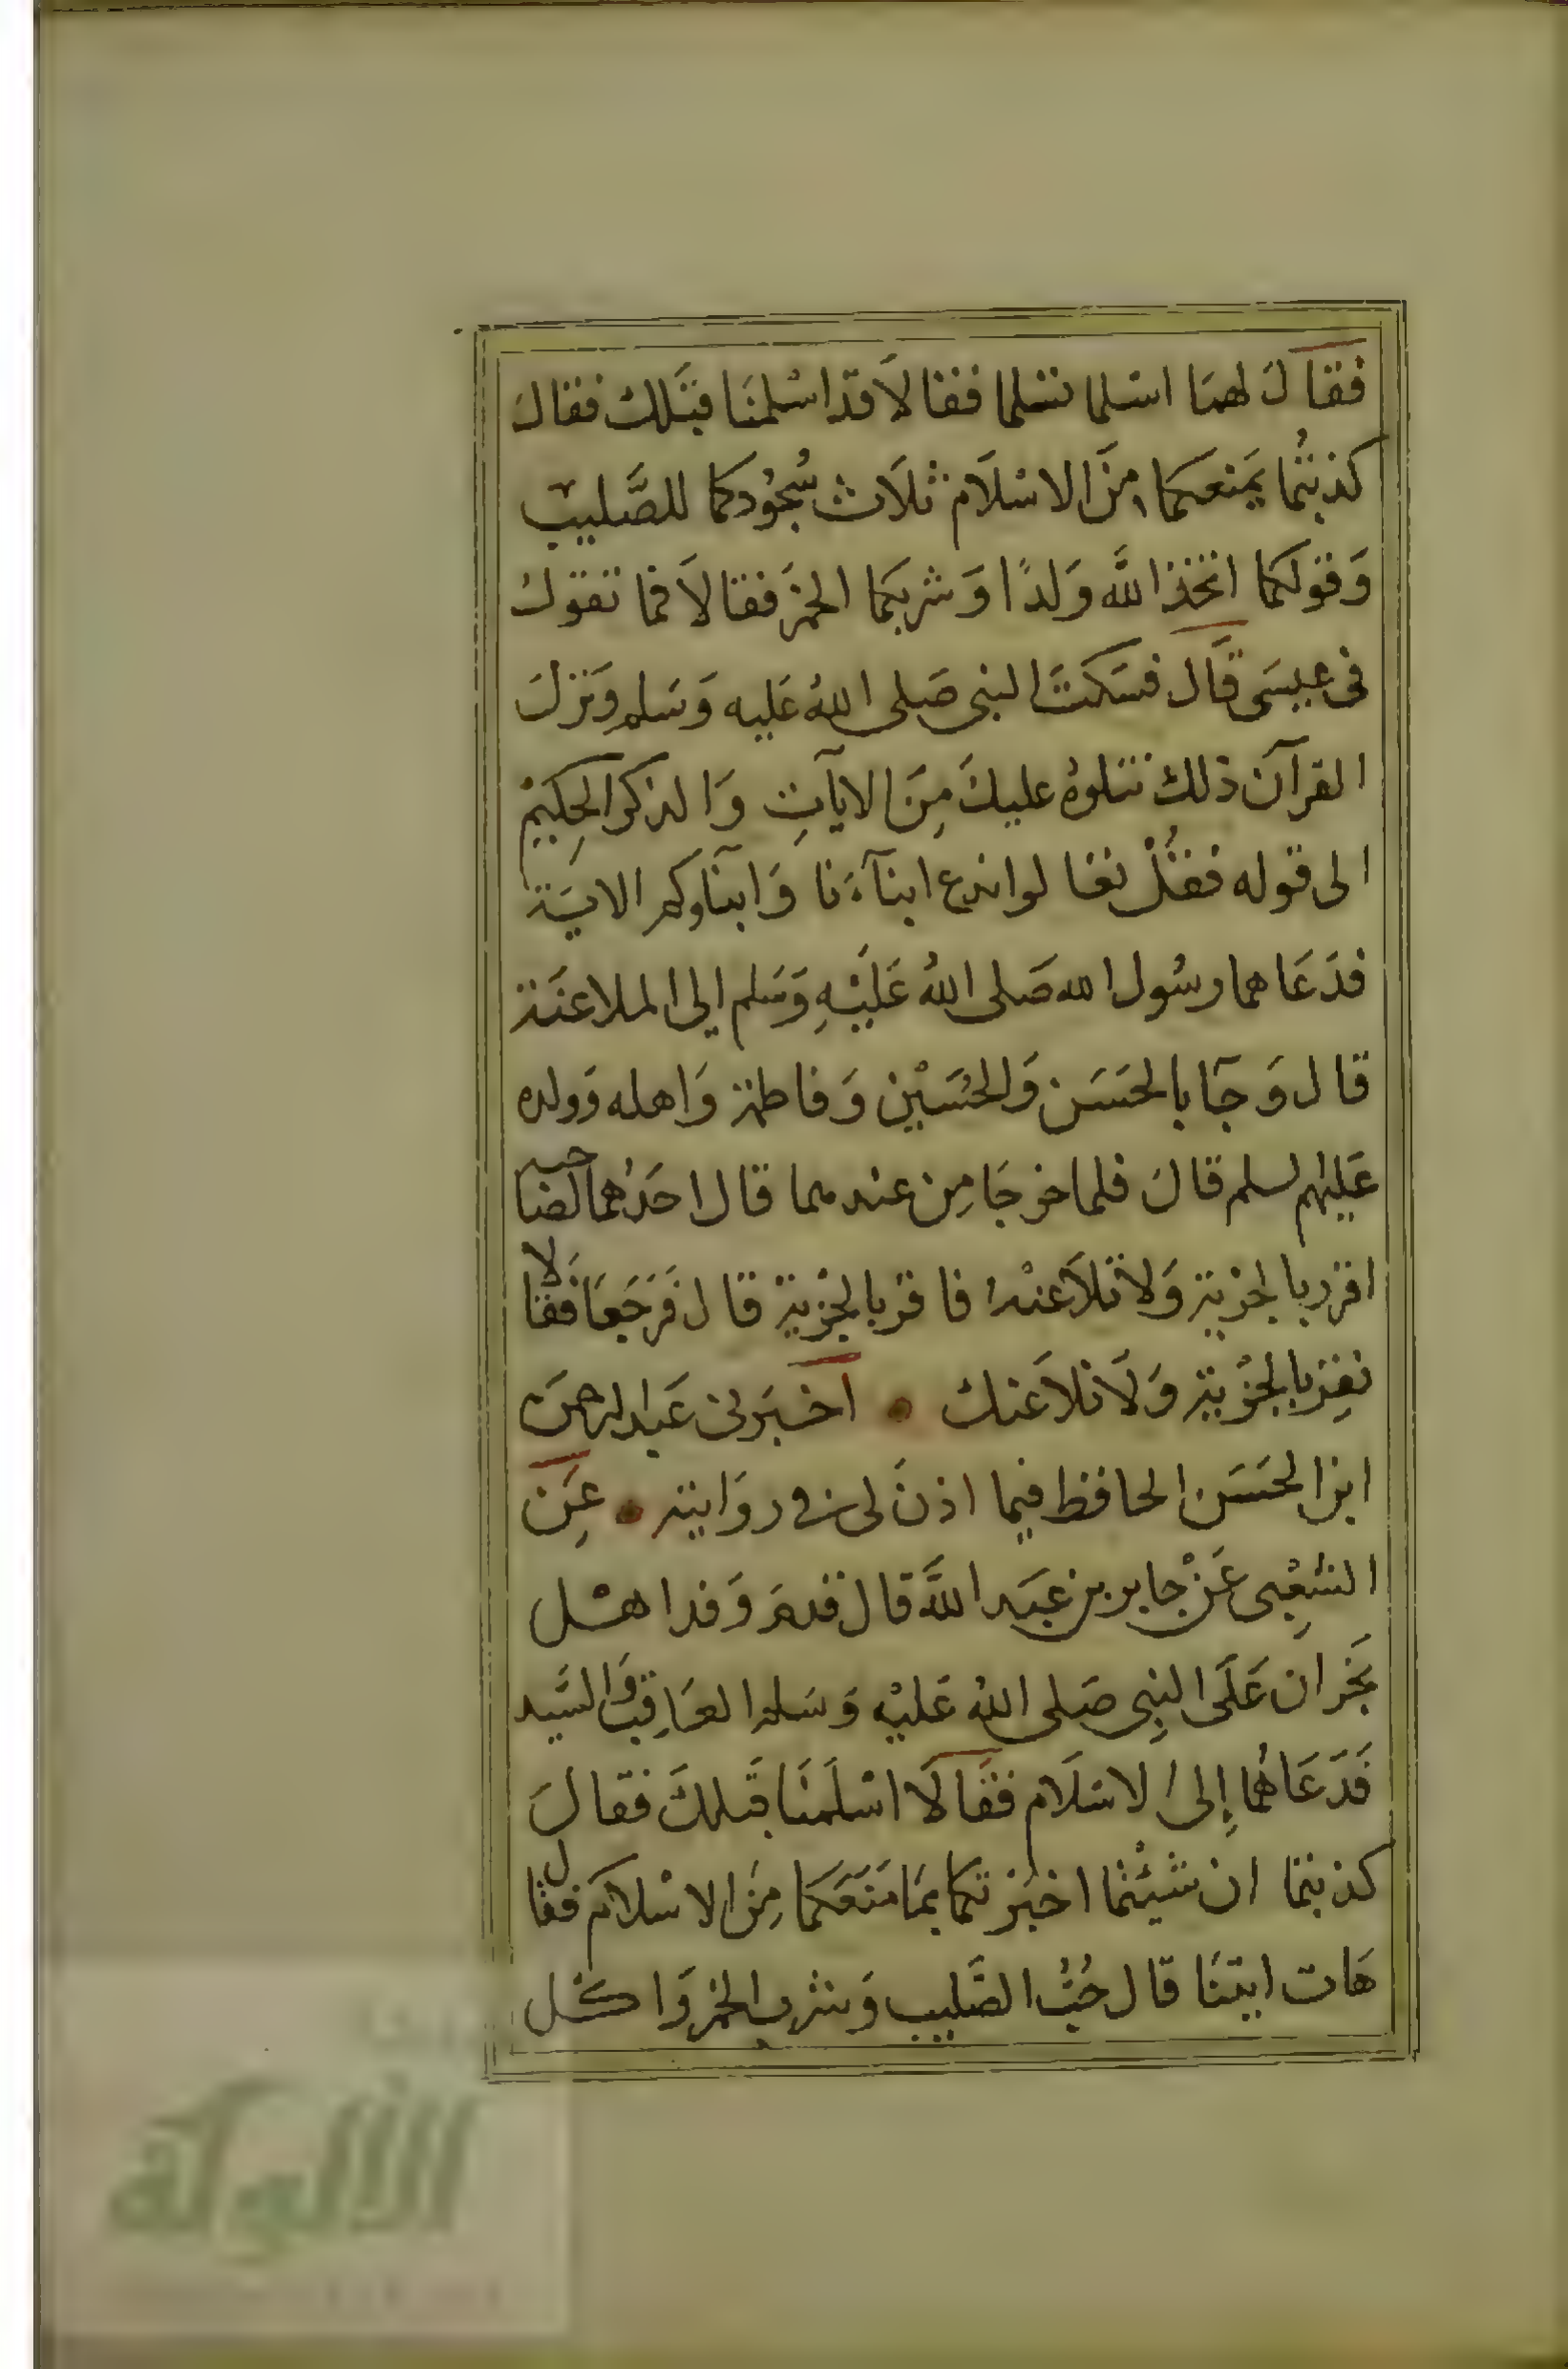 فقال لهما اسلما تسلما فقالا قد اسلمنا قبلك فقال
كذبتما يمنعكما من الاسلام ثلاث سجودكما للصليب
وقولكما اتخذ الله ولدا وشربكما الخمر فقالا فما تقول
فى عيسى قال فسكت النبى صلى الله عليه وسلم ونزل
القرآن ذلك نتلوه عليك من الايآت والذكر الحكيم
الى قوله فقل تعالوا ندع ابنآءنا وابنآوكم الاية
فدعاهما رسول الله صلى الله عليه وسلم إلى الملاعنة
قال وجآ بالحسن والحسين وفاطمة واهله وولده
عليهم لسلم قال فلما خرجا من عندهما قال احدهما لصاحبه
اقرر بالجزية ولا تلاعنه فاقر بالجزية قال فرجعا فقالا
نقر بالجزية ولا نلاعنك • اخبرنى عبد الرحمن
ابن الحسن الحافظ فيما اذن لى فى روايته • عن
الشعبى عن جابر بن عبد الله قال قدم وفد اهل
نجران على النبى صلى الله عليه وسلم العاقب والسيد
فدعاهما إلى الاسلام فقالا اسلمنا قبلك فقال
كذبتما ان شيئتما اخبرتكما بما منعكما من الاسلام فقال
هات ايتنا قال حب الصليب وشرب الخمر واكل
الألوكة